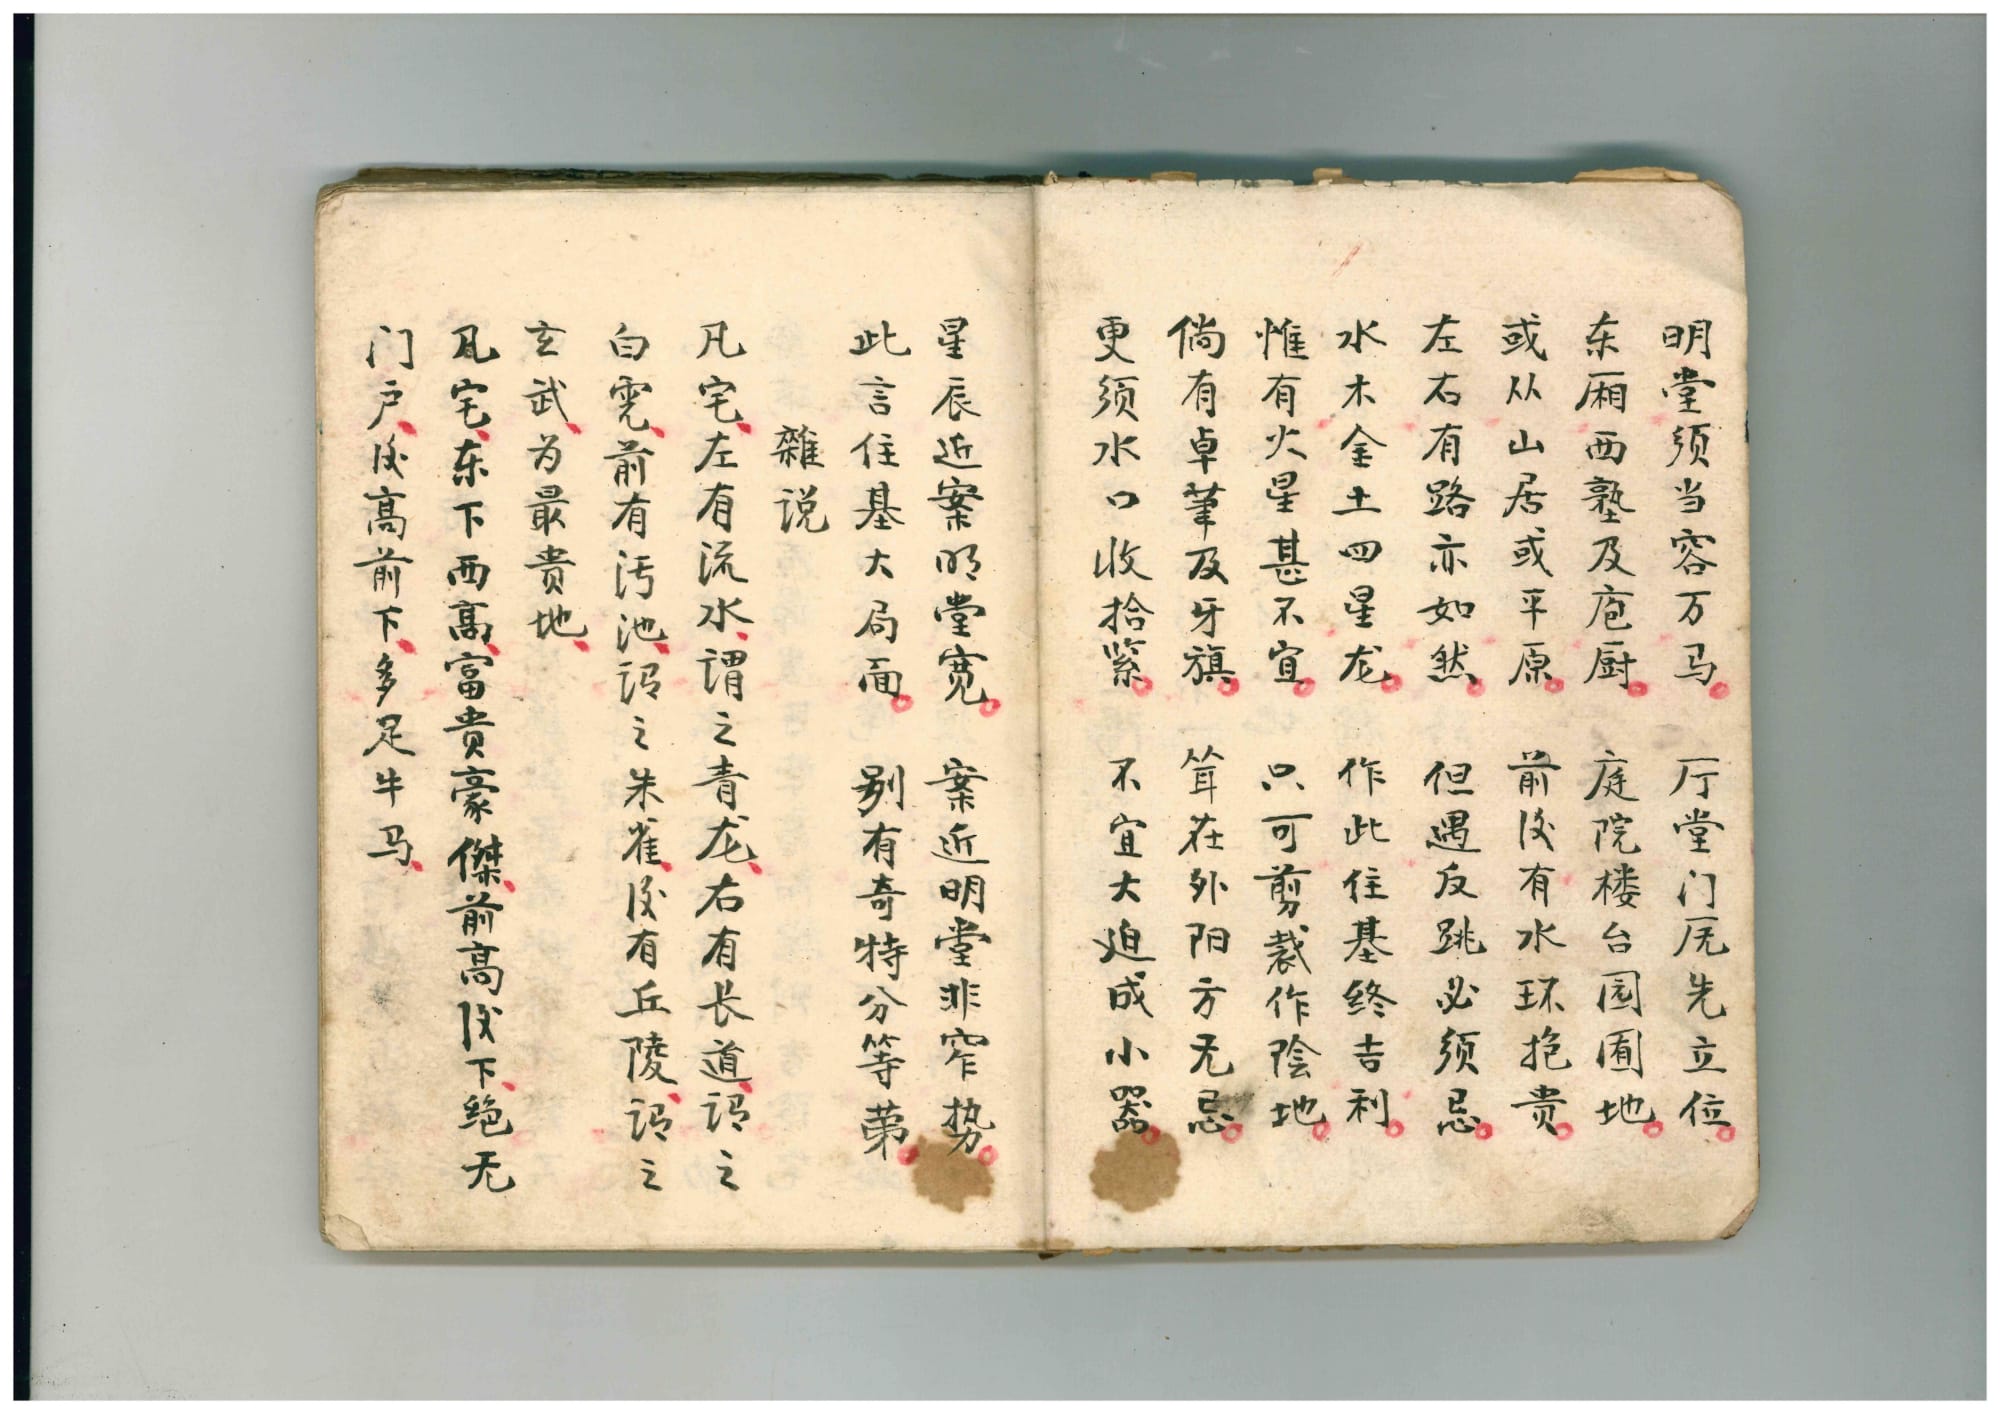 明堂须当容万马 厅堂门庑先立位
东厢西塾及庖厨 庭院楼台园圃地
或从山居或平原 前后有水环抱贵
左右有路亦如然 但遇反跳必须忌
水木金土四星龙 作此住基终吉利
惟有火星甚不宜 只可剪裁作陰地
倘有卓筆及牙旗 耸在外阳方无忌
更须水口收拾紧 不宜大迫成小器
星辰近案明堂宽 案近明堂非窄势
此言住基大局面 别有奇特分等第
雜说
凡宅、左有流水、谓之青龙、右有长道、谓之
白虎、前有污池、谓之朱雀、后有丘陵、谓之
玄武、为最贵地、
凡宅、东下西高、富贵豪傑、前高后下、绝无
门户、后高前下、多足牛马、